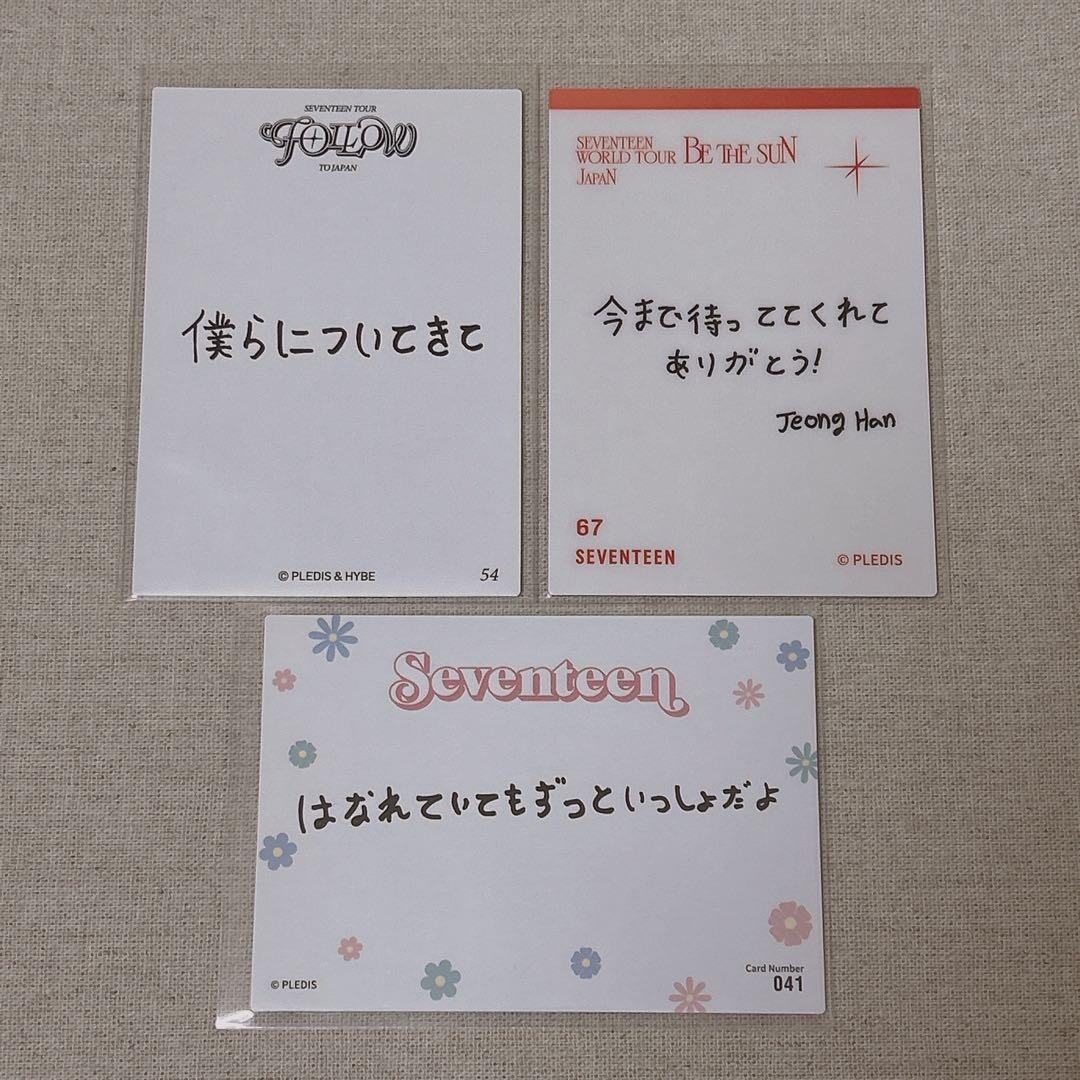 SEVENTEEN TOUR
FOLLOW
TO JAPAN
僕らについてきて
© PLEDIS & HYBE
54
SEVENTEEN
WORLD TOUR BE THE SUN
JAPAN
今まで待っててくれて
ありがとう!
Jeong Han
67
SEVENTEEN
© PLEDIS
Seventeen
はなれていてもずっといっしょだよ
© PLEDIS
Card Number
041